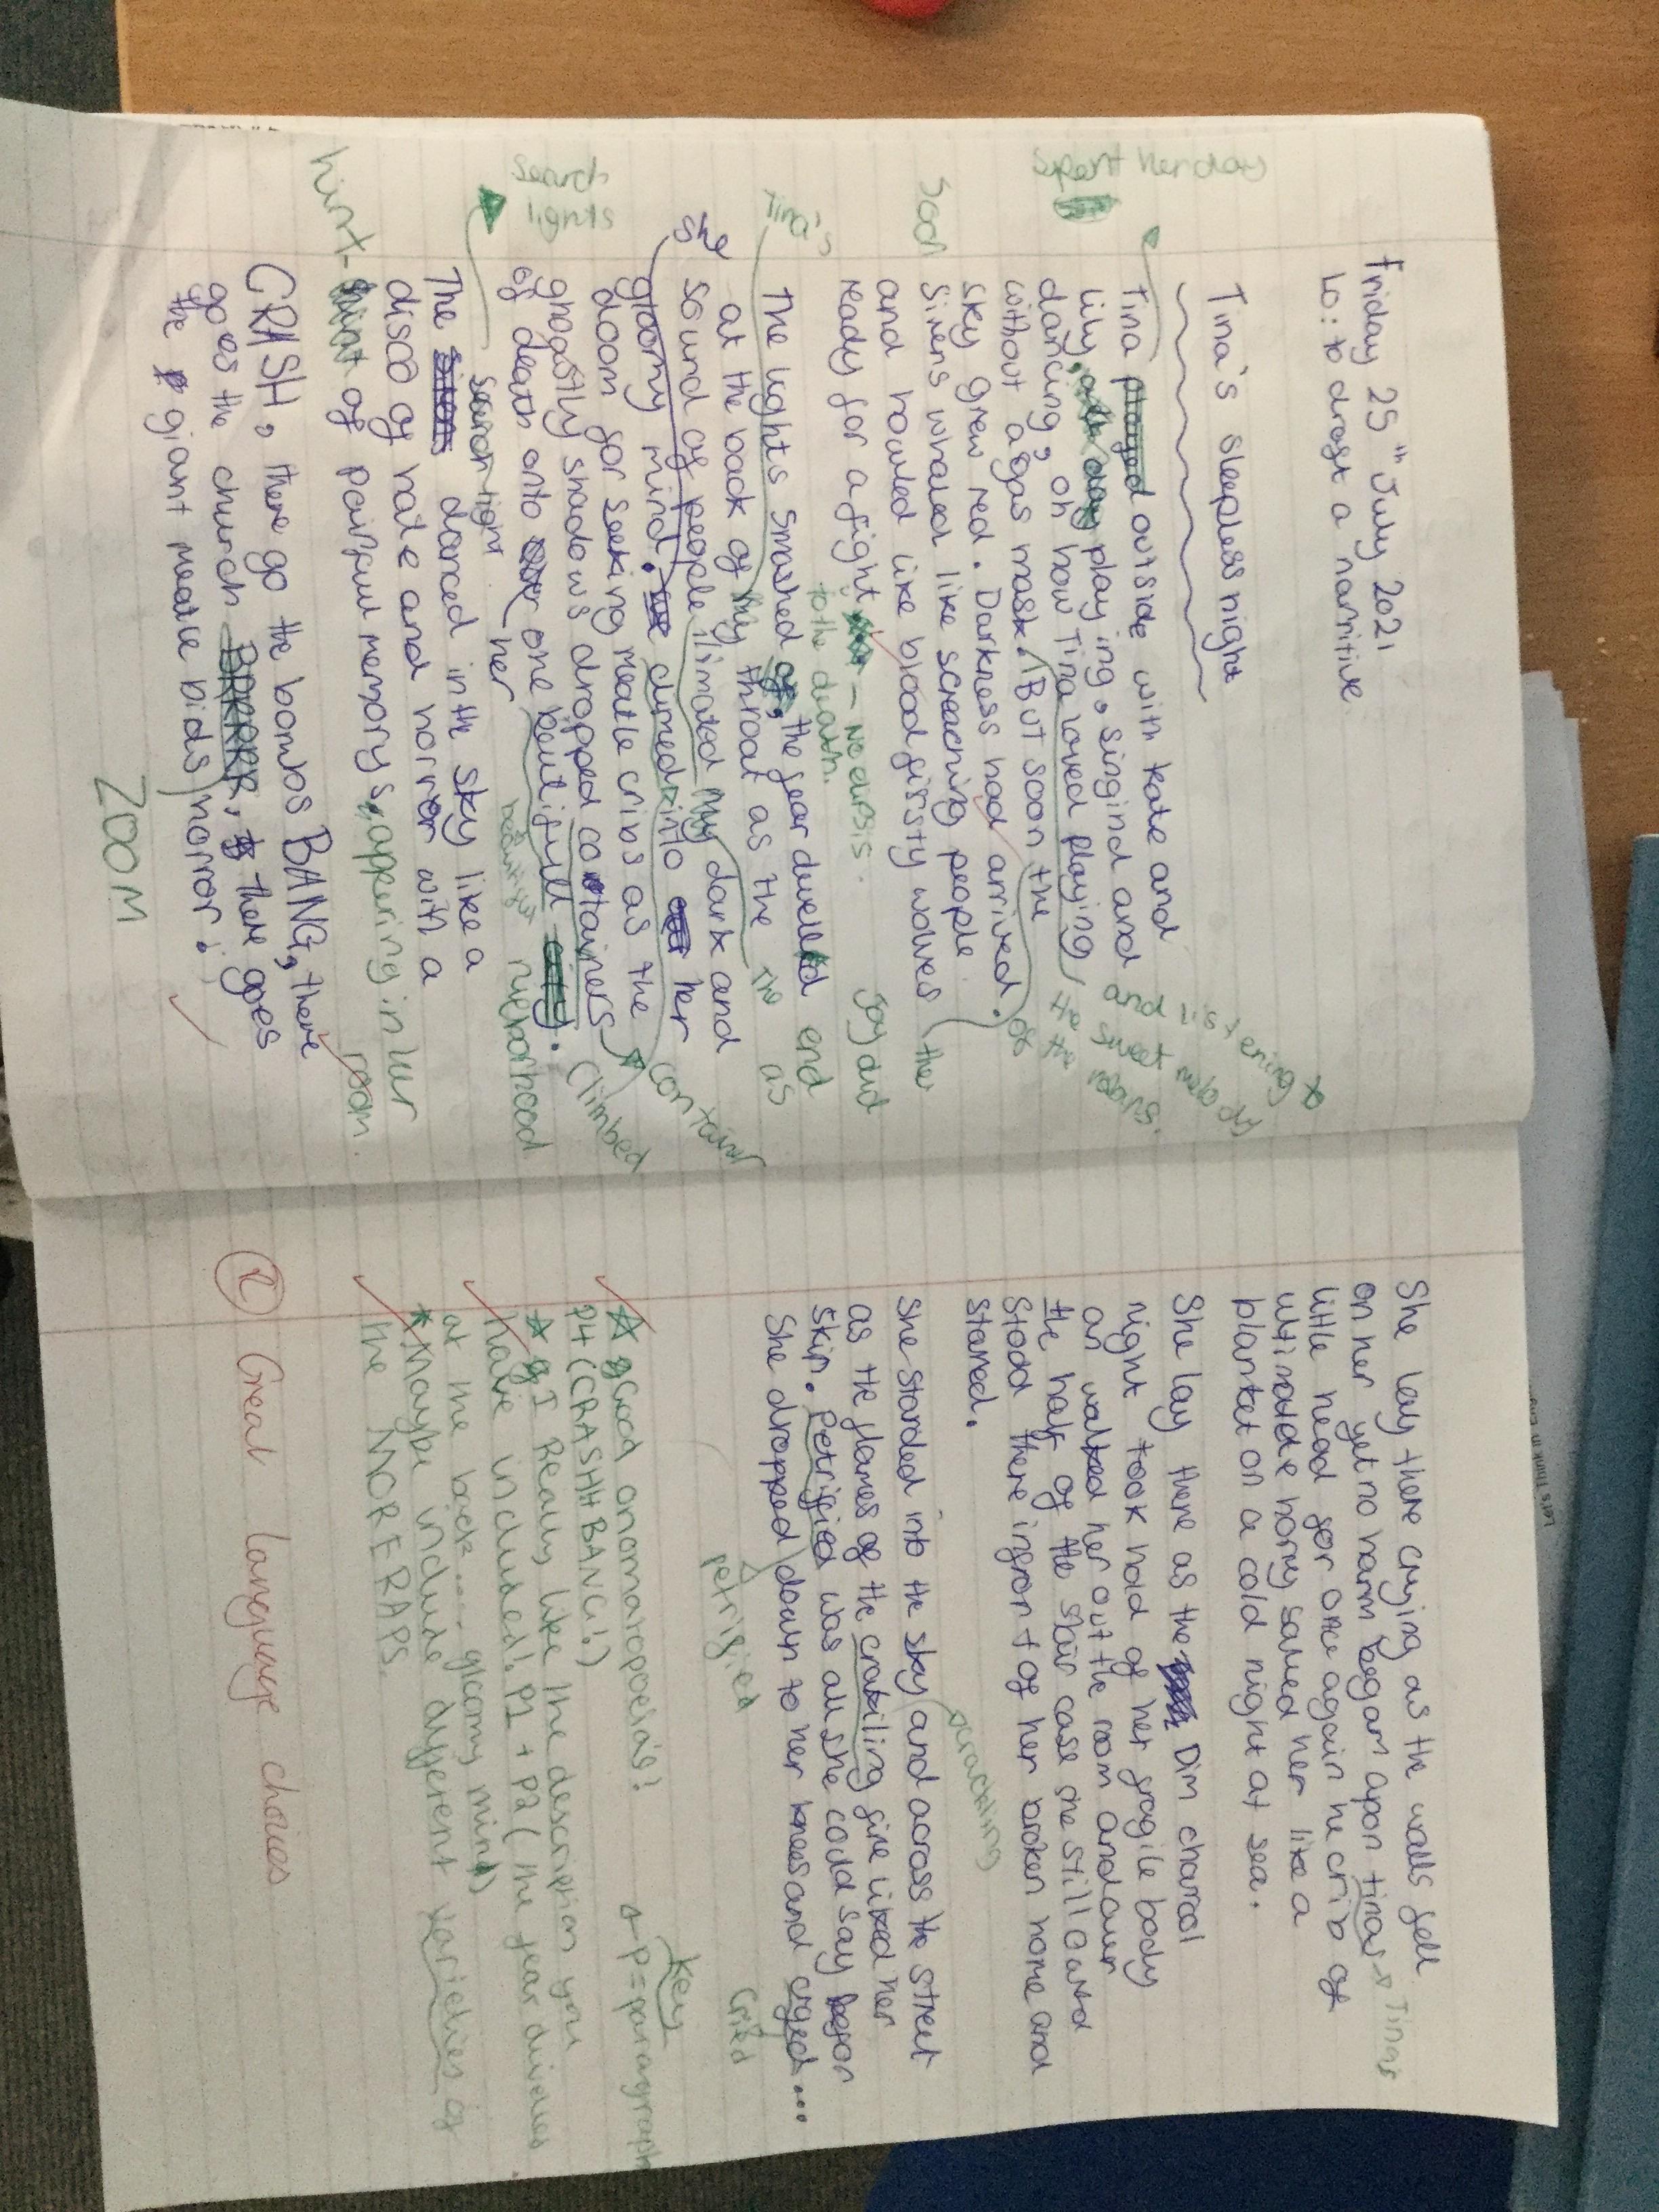 Friday 25th July 2021
Lo: to drast a narritive
Tina's sleepless night
Spent her day
Tina played outside with kate and
lily, all day playing, singind and
dancing, oh how Tina loved playing
and listening to
the sweet melody
of the
without a gas mask. But soon the
sky grew red. Darkness had arrived.
Soon
Sirens whaled like screaching people
and howled like blood firsty wolves
the
ready for a fight
to the death.
The lights smashed of, the fear dwelled
end
Tina's
at the back of my throat as the
The
as
she
sound of people limated my dark and
gloomy mind. climed into her
container
doom for seeking meatle cribs as the
ghagstly shadows dropped containers
Climbed
of death onto one beutifull city.
her
beautiful nieborhood
Search
lights
search light
The sirens danced in the sky like a
disco of hate and horror with a
hint - of painful memorys, appering in her
room.
CRASH, there go the bombs BANG, there
goes the church BRRRR, there goes
the giant meatle bids, horror!
ZOOM
She lay there crying as the walls fell
on her yet no harm began apon tinas
Tinas
little head for once again he crib of
ultimate horry saved her like a
blanket on a cold night at sea.
She lay there as the Dim charcol
night took hold of her fragile body
an walked her out the room and
the half of the stair case she still
Stodd there infront of her broken home and
stared.
She standed into the sky and across the street
crackling
as the flames of the crakiling fire liked her
skin. Petrified was all she codd say
She dropped down to her knees and cryed...
petrified
Cried
Key
P = paragraph
good onomatopoeia's!
P4 (CRASHH BANG!)
I Really like the description you
have included! P1 + P2 (the fear
at the back.... gloomy mind)
Maybe include different varieties of
the MORERAPS.
Great language choices